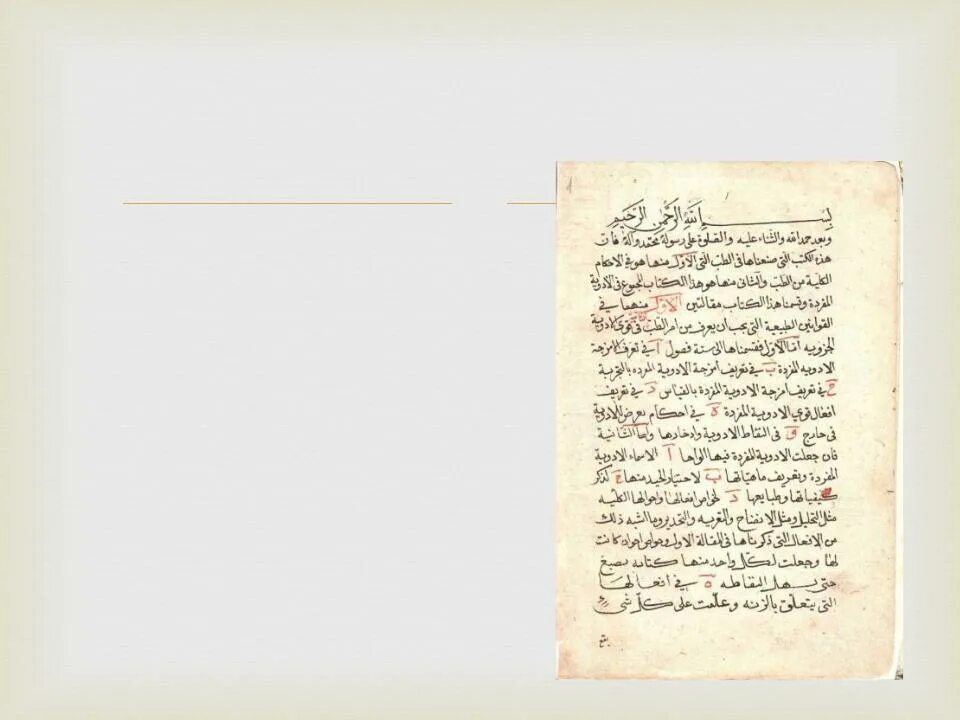 بسم الله الرحمن الرحيم
وبعد حمد الله والثناء عليه والصلوة على رسوله محمد وآله فان
هذه الكتب التى صنعناها فى الطب التى الاول منها هو فى الاحكام
الكلية من الطب والثانى منها هو هذا الكتاب المجموع فى الادوية
المفردة وقسمنا هذا الكتاب مقالتين الاولى منهما فى
القوانين الطبيعية التى يجب ان يعرف من امر الطب فى قوى الادوية
الجزويه اما الاول فقسمناها الى ستة فصول ا فى تعرف امزجة
الادويه المفردة ب فى تعريف امزجة الادوية المفرده بالتجربة
ج فى تعريف امزجة الادوية المفردة بالقياس د فى تعريف
افعال قوى الادوية المفردة ه فى احكام يعرض للادوية
فى خارج و فى التقاط الادوية وادخارها واما الثانية
فان جعلت الادوية المفردة فيها الواحا ا لاسماء الادوية
المفردة وتعريف ماهياتها ب لاختيار الجيد منها ج لذكر
كيفياتها وطبايعها د لخواص افعالها واحوالها الكليه
مثل التحليل ومثل الانضاج والتغريه والتخدير وما اشبه ذلك
من الافعال التى ذكرناها فى المقالة الاولى وخواص اخرى ان كانت
لها وجعلت لكل واحد منها كتابه بصبغ
حتى يسهل التقاطه ه فى افعالها
التى يتعلق بالزنه وعلمت على كل شى